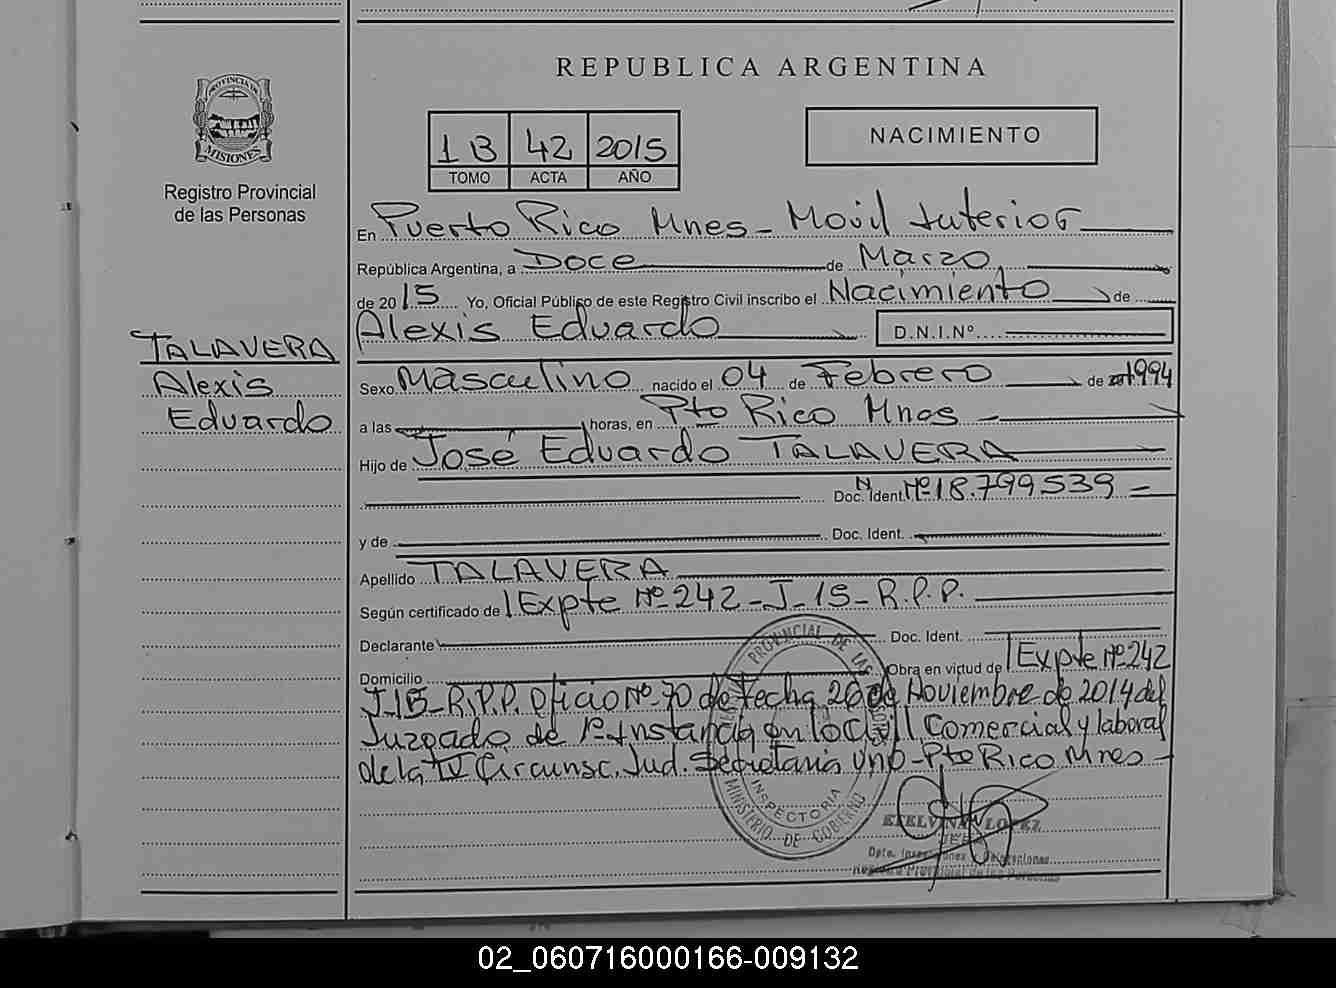 REPUBLICA ARGENTINA
PROVINCIA DE
MISIONES
Registro Provincial
de las Personas
1B 42 2015
TOMO ACTA AÑO
NACIMIENTO
En Puerto Rico Mnes - Movil Interior
República Argentina, a Doce de Marzo
de 2015 Yo, Oficial Público de este Registro Civil inscribo el Nacimiento de
Alexis Eduardo D.N.I.Nº
TALAVERA
Alexis
Eduardo
Sexo Masculino nacido el 04 de Febrero de 1994
a las horas, en Pto Rico Mnes -
Hijo de José Eduardo TALAVERA
Doc. Ident. Nº 18.799539 -
y de Doc. Ident.
Apellido TALAVERA
Según certificado de Expte Nº 242-J-15-R.P.P.
Declarante Doc. Ident.
Domicilio Obra en virtud de Expte Nº 242
J-15-R.P.P. Oficio Nº 70 de fecha 26 de Noviembre de 2014 del
Juzgado de 1º Instancia en lo Civil Comercial y laboral
de la IV Circunsc. Jud. Secretaria Uno - Pto Rico Mnes -
PROVINCIAL DE LAS
INSPECTORIA
MINISTERIO DE GOBIERNO
ETELVINA LOPEZ
JEFA
Dpto. Inspecciones Delegaciones
Registro Provincial de las Personas
02_060716000166-009132